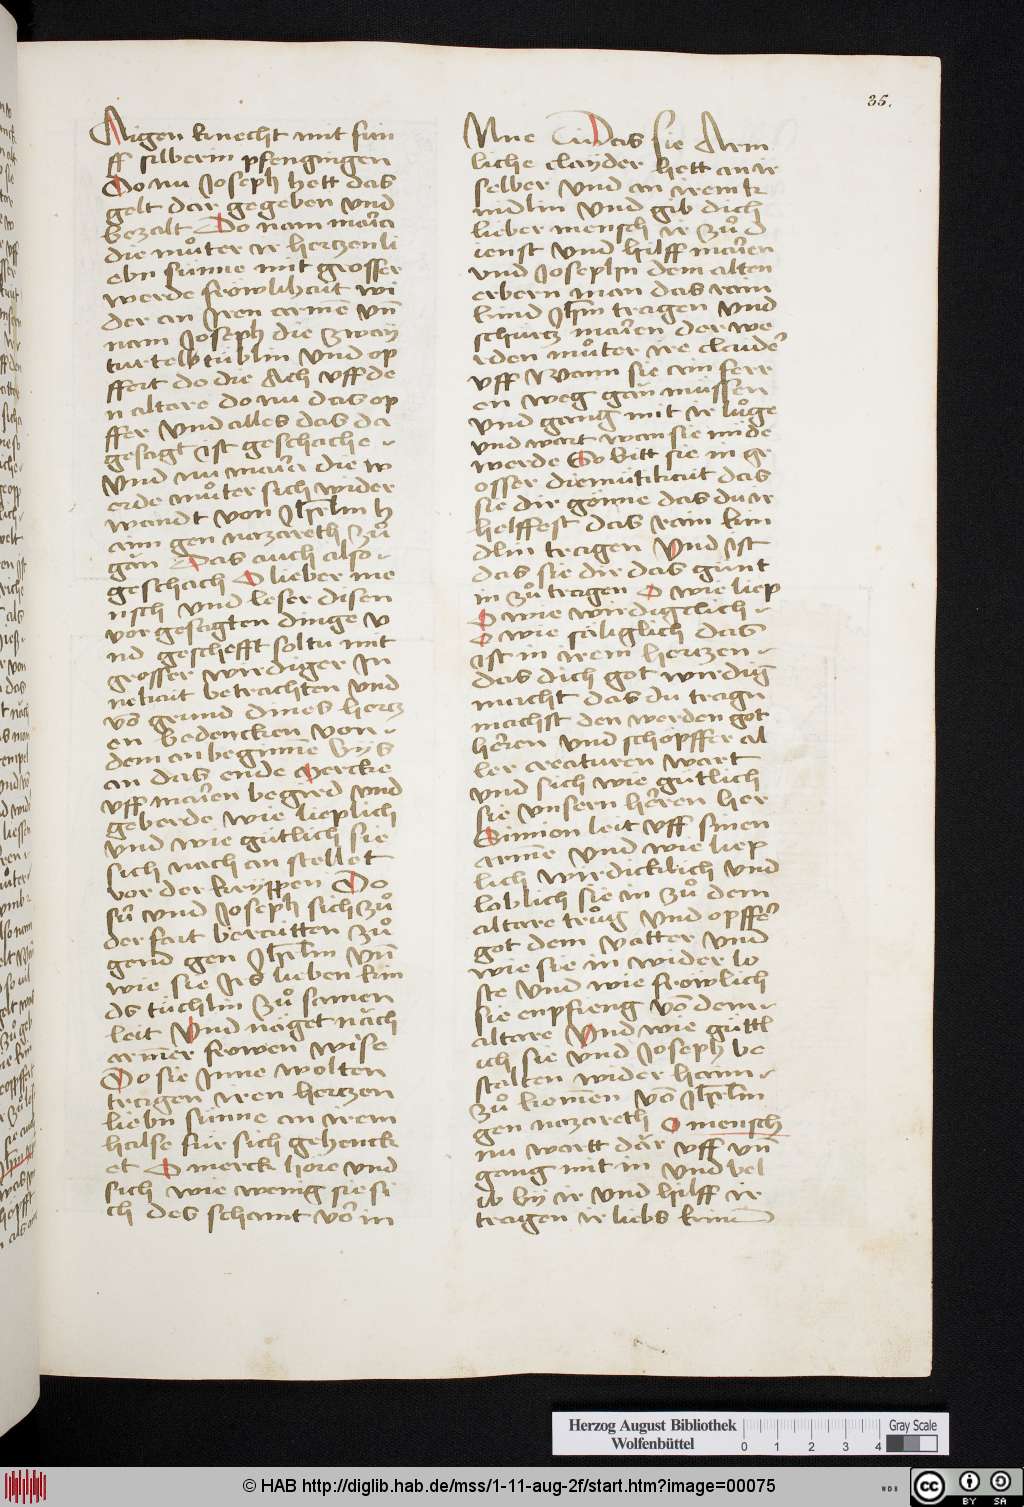 35.
Aigen knecht mit fün
ff silberin pfenningen
Do nu Joseph hett das
gelt dar gegeben vnd
bezalt Do nam maria
die můter ir hertzenli
ebn sunne mit grosser
werde fröwlikait wi
der an Iren arme vn
nam Joseph die zway
turteltüblin vnd op
ffert do die Ach vff de
n altare do nu das op
ffer vnd alles das da
gesagt ist geschache
Vnd nu maria die w
erde můter sich wider
wandt von Jhrlm h
aim gen nazareth zů
gän Das auch also
geschach O lieber me
nsch vnd leser disen
vorgesagten dinge v
nd geschefft soltu mit
grosser wirdiger In
nekait betrachten vnd
vō grund dines hertz
en bedencken von
dem anbeginne bys
an das ende Mercke
vff marien begird vnd
geberde wie lieplich
vnd wie gütlich sie
sich nach an stellet
vor der kryppen Do
su vnd Joseph sich zů
der fart beraitten zů
gend gen Jhrlm vn
wie sie Irs lieben kin
ds tüchlin zů samen
leit Vnd näget näch
armer frowen wise
Do sie Inne wolten
tragen iren hertzen
liebn sunne an irem
halse für sich gehenck
et O merck hore vnd
sich wie wenig sie si
ch des schamt vor in
das sie Arm
liche clayder hett an ir
selber vnd an irem k
indlin vnd gib dich
lieber mensch ir zů d
ienst vnd hilff marien
vnd Josephn dem alten
erbern man das rain
kind Jhm tragen vnd
schürtz marien der we
rden můter ire claider
vff Wann sie ain ferr
en weg gän müssen
vnd gang mit ir lůge
vnd wart wan sie müde
werde So bitt sie in gr
osser diemütikait das
sie dir gönne das du ir
helffest das rain kin
dlin tragen Vnd ist
das sie dir das günt
in zů tragen O wie liep
O wie wirdigclich
O wie säliglich das
ist in irem hertzen
das dich got wirdig
macht das du tragn
machst den werden got
herren vnd schöpffer al
ler creaturen wart
vnd sich wie gütlich
sie vnsern herren her
Simion leit vff sinen
arme vnd wie liep
lich wirdicklich vnd
loblich sie in zů dem
altare trůg vnd opffer
got dem vatter vnd
wie sie in wider lo
ste vnd wie fröwlich
sie enpfieng vō dem
altare Vnd wie gütl
ich sie vnd Joseph be
stalten wider haim
zů komen vō Jhrlm
gen nazareth O mensch
nu wartt där vff vn
gang mit in vnd bel
ib by ir vnd hilff ir
tragen ir liebs kind
Herzog August Bibliothek
Wolfenbüttel
0 1 2 3 4
Gray Scale
© HAB http://diglib.hab.de/mss/1-11-aug-2f/start.htm?image=00075
WDB
cc BY SA